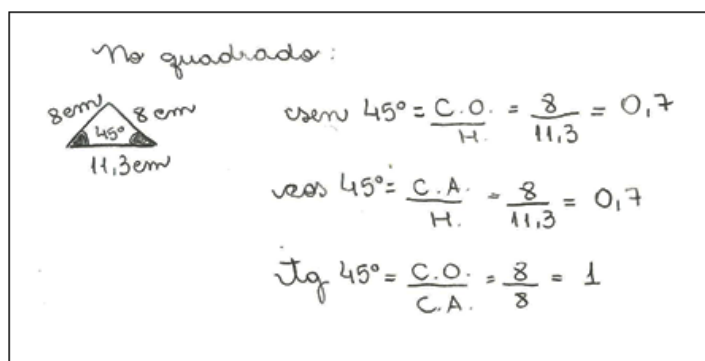 No quadrado:
8cm 8cm
45°
11,3cm
sen 45° = C.O./H. = 8/11,3 = 0,7
cos 45° = C.A./H. = 8/11,3 = 0,7
tg 45° = C.O./C.A. = 8/8 = 1